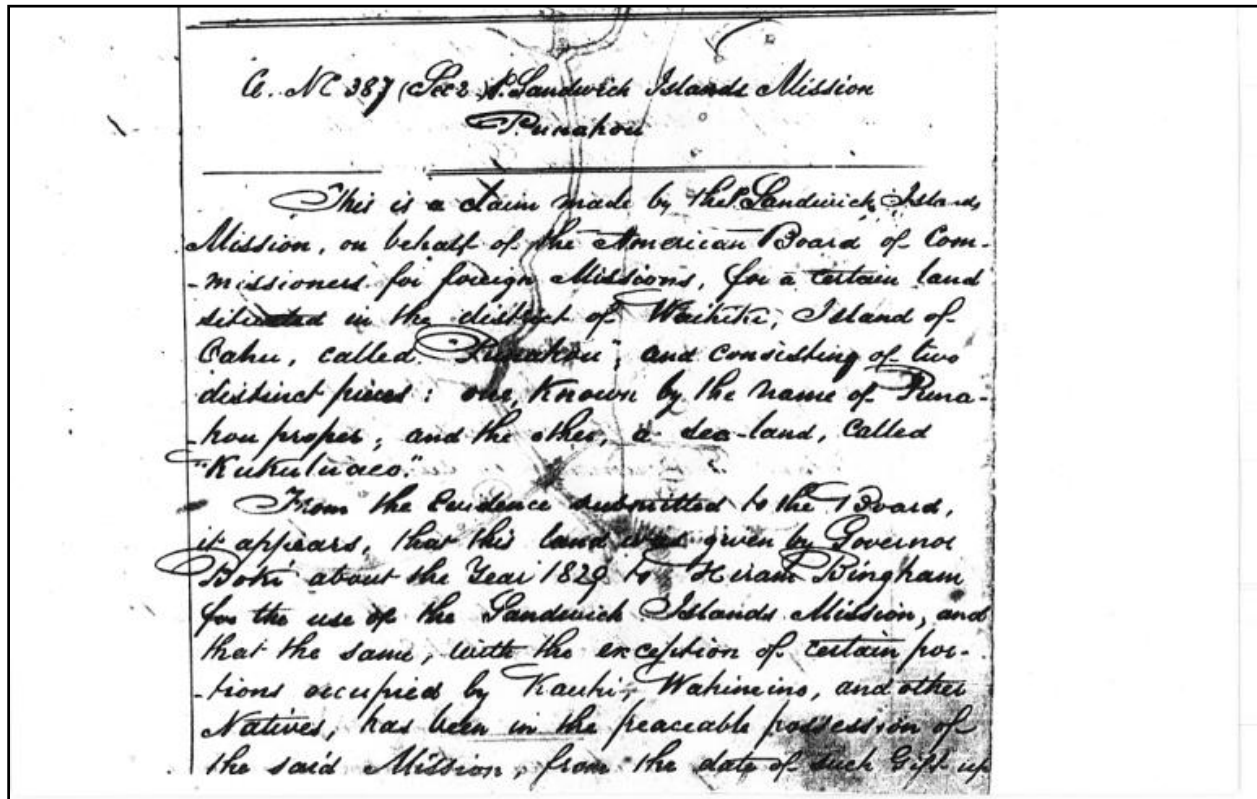 Cl. No 387 (Sec 2) Sandwich Islands Mission
Punahou
This is a claim made by the Sandwich Islands
Mission, on behalf of the American Board of Com-
-missioners for foreign Missions, for a certain land
situated in the district of Waikiki, Island of
Oahu, called "Punahou", and consisting of two
distinct pieces: one, known by the name of Puna-
-hou proper, and the other, a sea-land, called
"Kukuluaeo."
From the Evidence submitted to the Board,
it appears, that this land was given by Governor
Boki about the Year 1829 to Hiram Bingham
for the use of the Sandwich Islands Mission, and
that the same, with the exception of certain por-
-tions occupied by Kauhi, Wahineino, and other
Natives, has been in the peaceable possession of
the said Mission, from the date of such Gift up